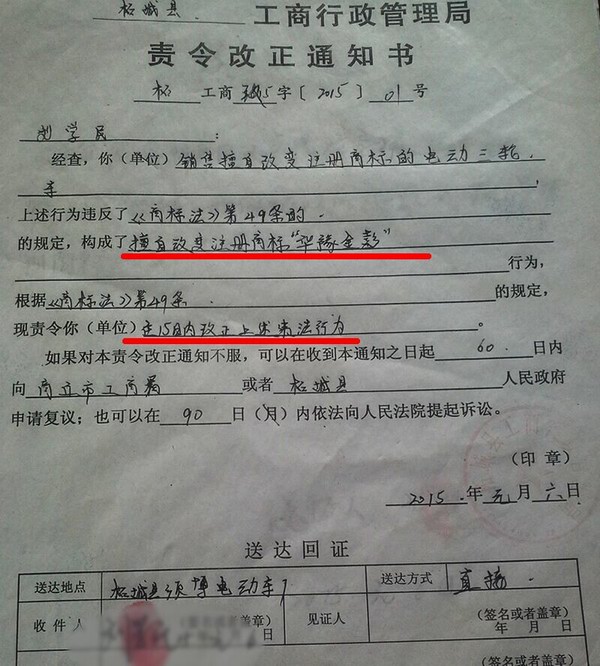 柘城县 工商行政管理局
责令改正通知书
柘 工商 字〔2015〕01号
刘学民：
经查，你（单位）销售擅自改变注册商标的电动三轮
车
上述行为违反了《商标法》第49条的
的规定，构成了擅自改变注册商标“华豫金彭”
行为，
根据《商标法》第49条 的规定，
现责令你（单位）在15日内改正上述违法行为。
如果对本责令改正通知不服，可以在收到本通知之日起 60 日内
向 商丘市工商局 或者 柘城县 人民政府
申请复议；也可以在 90 日（月）内依法向人民法院提起诉讼。
（印 章）
2015 年 元 月 六 日
送达回证
送达地点 柘城县 博电动车行 送达方式 直接
收件人 盖章） 见证人 （签名或者盖章）
日 年 月 日